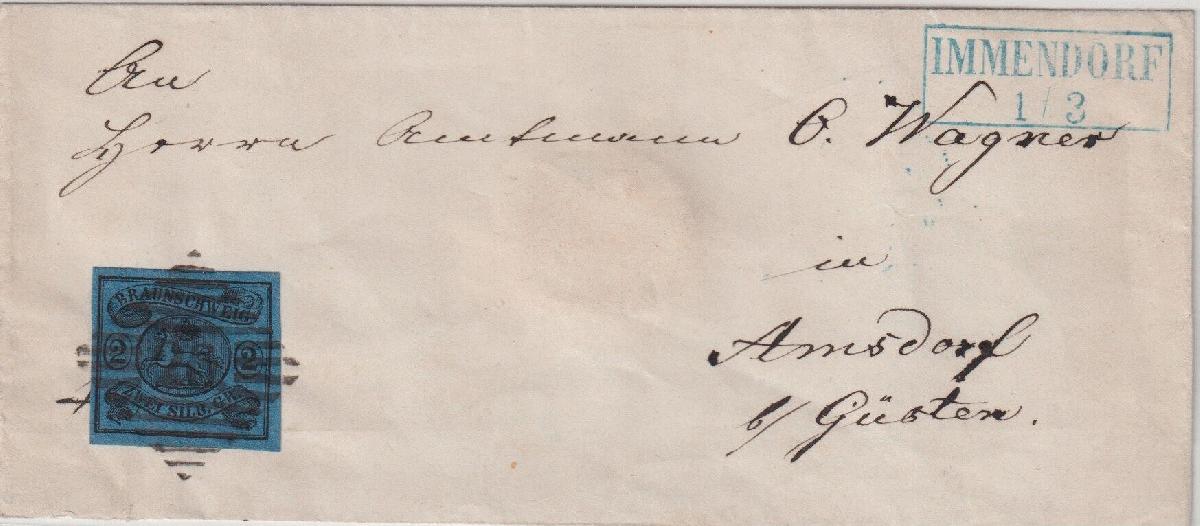 IMMENDORF
1/3
An
Herrn Amtmann O. Wagner
in
Amsdorf
b/ Güsten.
BRAUNSCHWEIG
2 2
ZWEI SILB. GR.